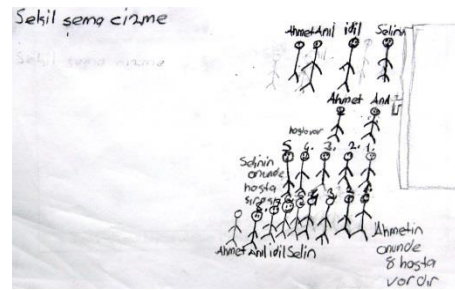 Sekil şema cizme
Ahmet Anıl idil Selin
Ahmet Anıl
5. 4. 3. 2. 1.
Selinin
onunde
hasta
Ahmet Anıl idil Selin
Ahmetin
onunde
8 hasta
vordır